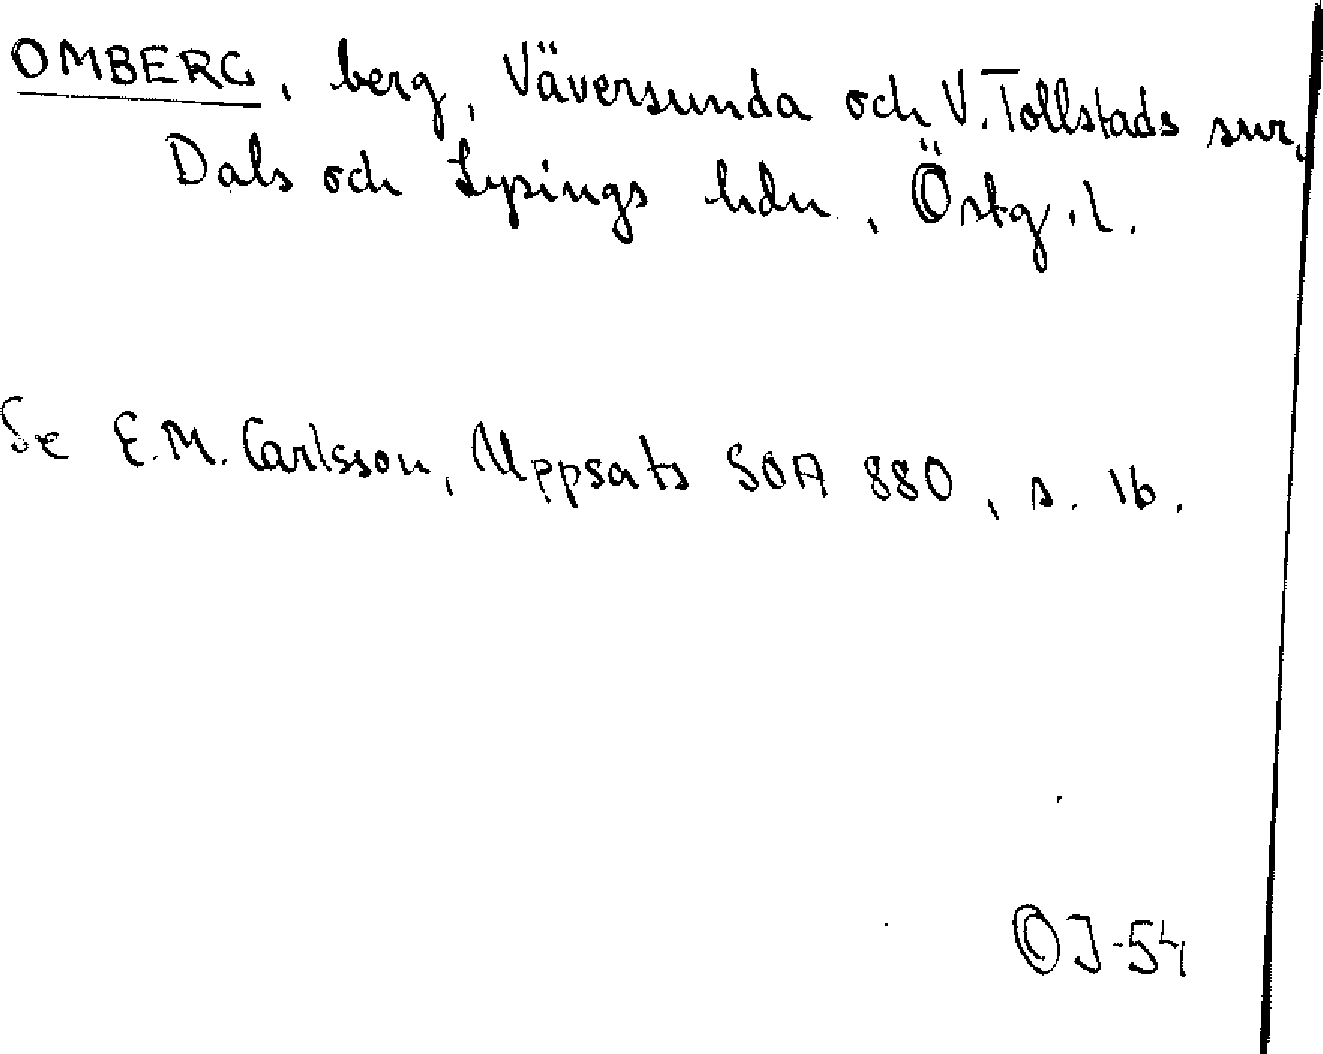 OMBERG, berg, Väversunda och V. Tollstads snr,
Dals och Lysings hdn, Östg.l.
Se E.M. Carlsson, Uppsats SOA 880, s. 16.
OJ-54